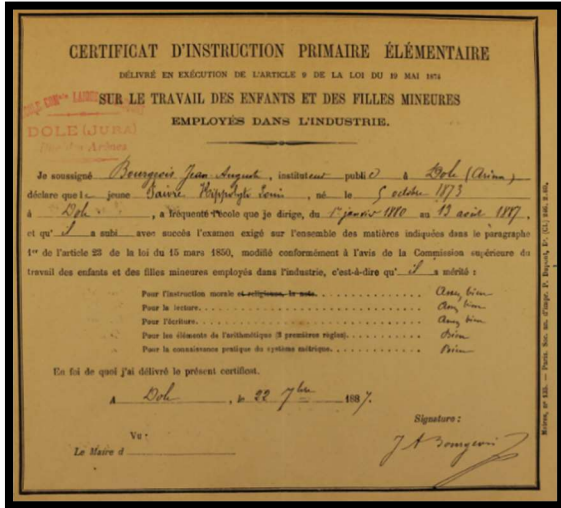 CERTIFICAT D'INSTRUCTION PRIMAIRE ÉLÉMENTAIRE
DÉLIVRÉ EN EXÉCUTION DE L'ARTICLE 9 DE LA LOI DU 19 MAI 1874
SUR LE TRAVAIL DES ENFANTS ET DES FILLES MINEURES
EMPLOYÉS DANS L'INDUSTRIE.
DOLE (JURA)
Rue des Arènes
Je soussigné Bourgeois Jean Auguste, instituteur public à Dole
déclare que le jeune Hippolyte Louis, né le 5 octobre 1873
à Dole, a fréquenté l'école que je dirige, du 1er janvier 1880 au 13 août 1887,
et qu'il a subi avec succès l'examen exigé sur l'ensemble des matières indiquées dans le paragraphe
1er de l'article 23 de la loi du 15 mars 1850, modifié conformément à l'avis de la Commission supérieure du
travail des enfants et des filles mineures employés dans l'industrie, c'est-à-dire qu'il a mérité :
Pour l'instruction morale et religieuse, la note Assez bien
Pour la lecture Assez bien
Pour l'écriture Assez bien
Pour les éléments de l'arithmétique (3 premières règles) Bien
Pour la connaissance pratique du système métrique Bien
En foi de quoi j'ai délivré le présent certificat.
A Dole, le 22 7bre 1887.
Signature :
Vu :
Le Maire d
J A Bourgeois